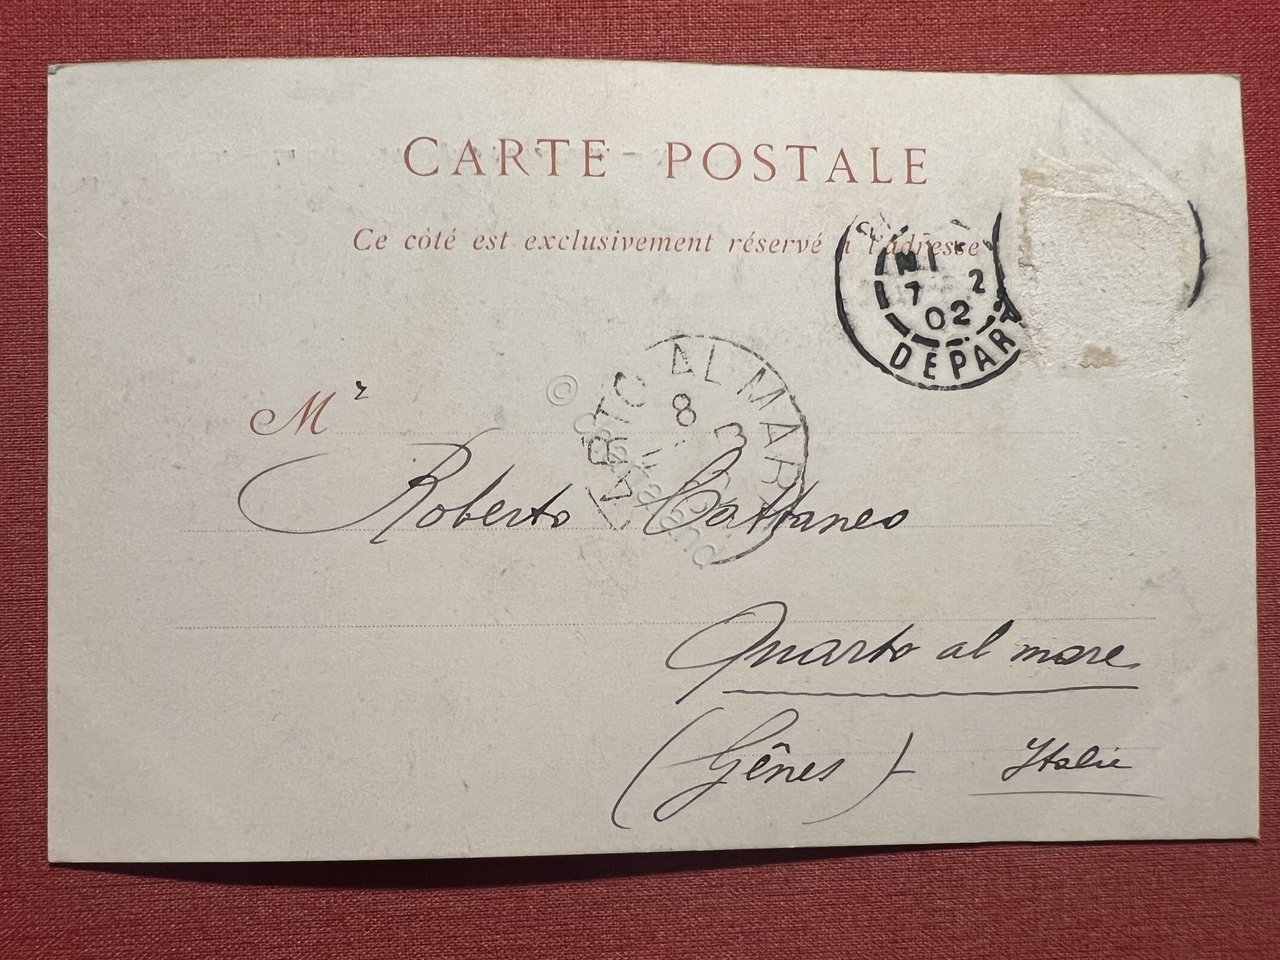 CARTE POSTALE
Ce côté est exclusivement réservé à l'adresse
7 2
02
DEPART
ARTO AL MAR
8
Mr
Roberto Cattaneo
Quarto al mare
(Gênes) Italie
© Cartaland